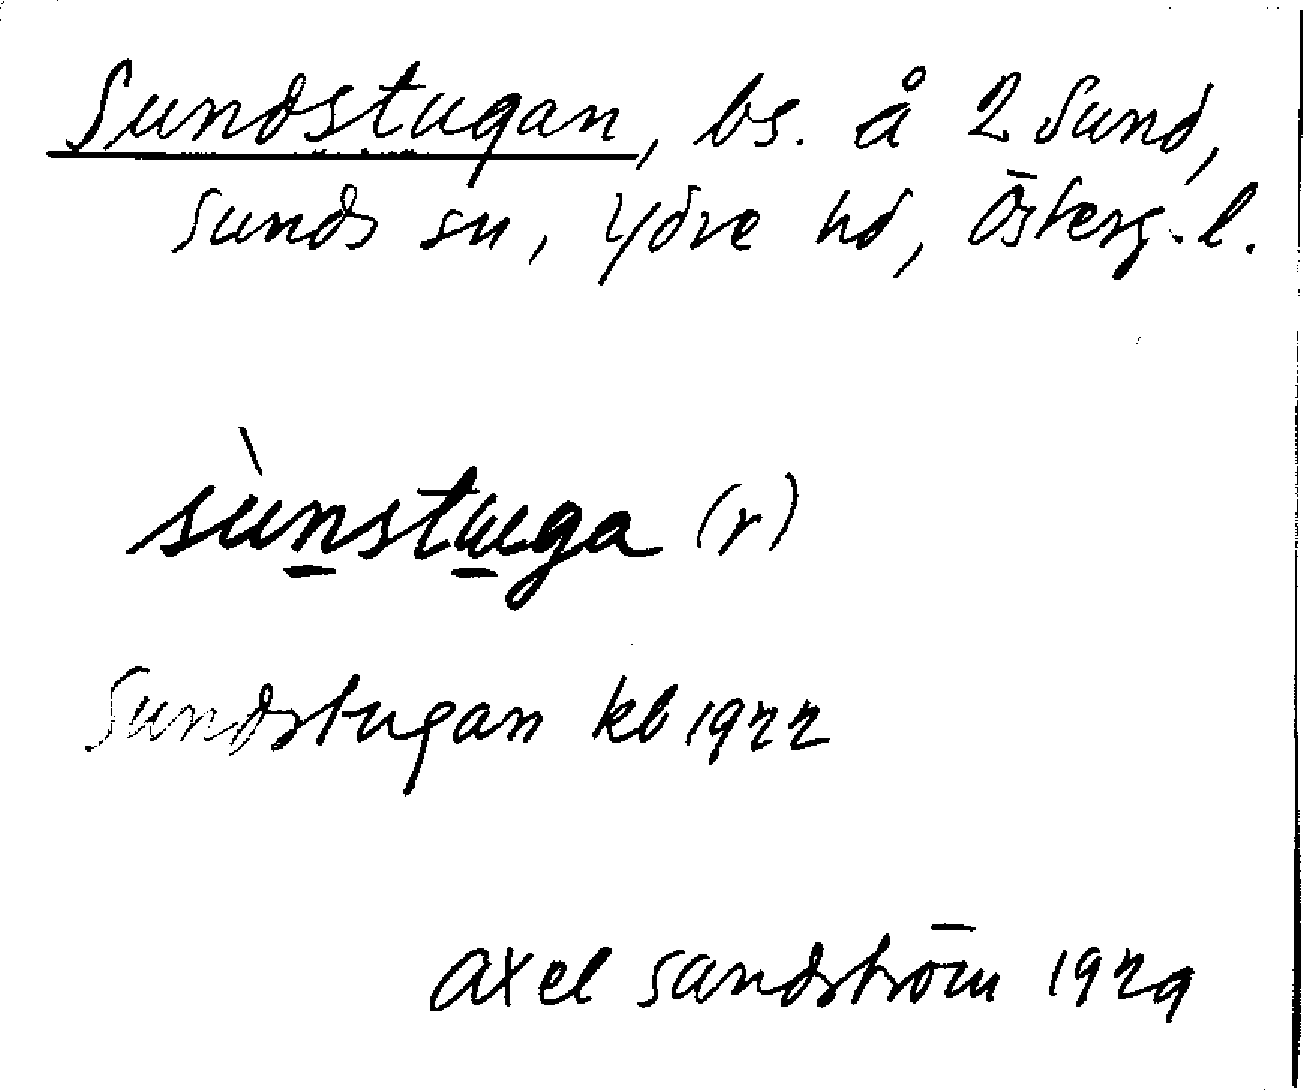 Sundstugan, bs. å 2 Sund,
Sunds sn, Ydre hd, Österg. l.
sùnstuga (r)
Sundstugan kb 1922
Axel Sandström 1929